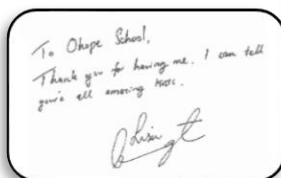 To Ohope School,
Thank you for having me. I can tell
you're all amazing kids.
Lisa